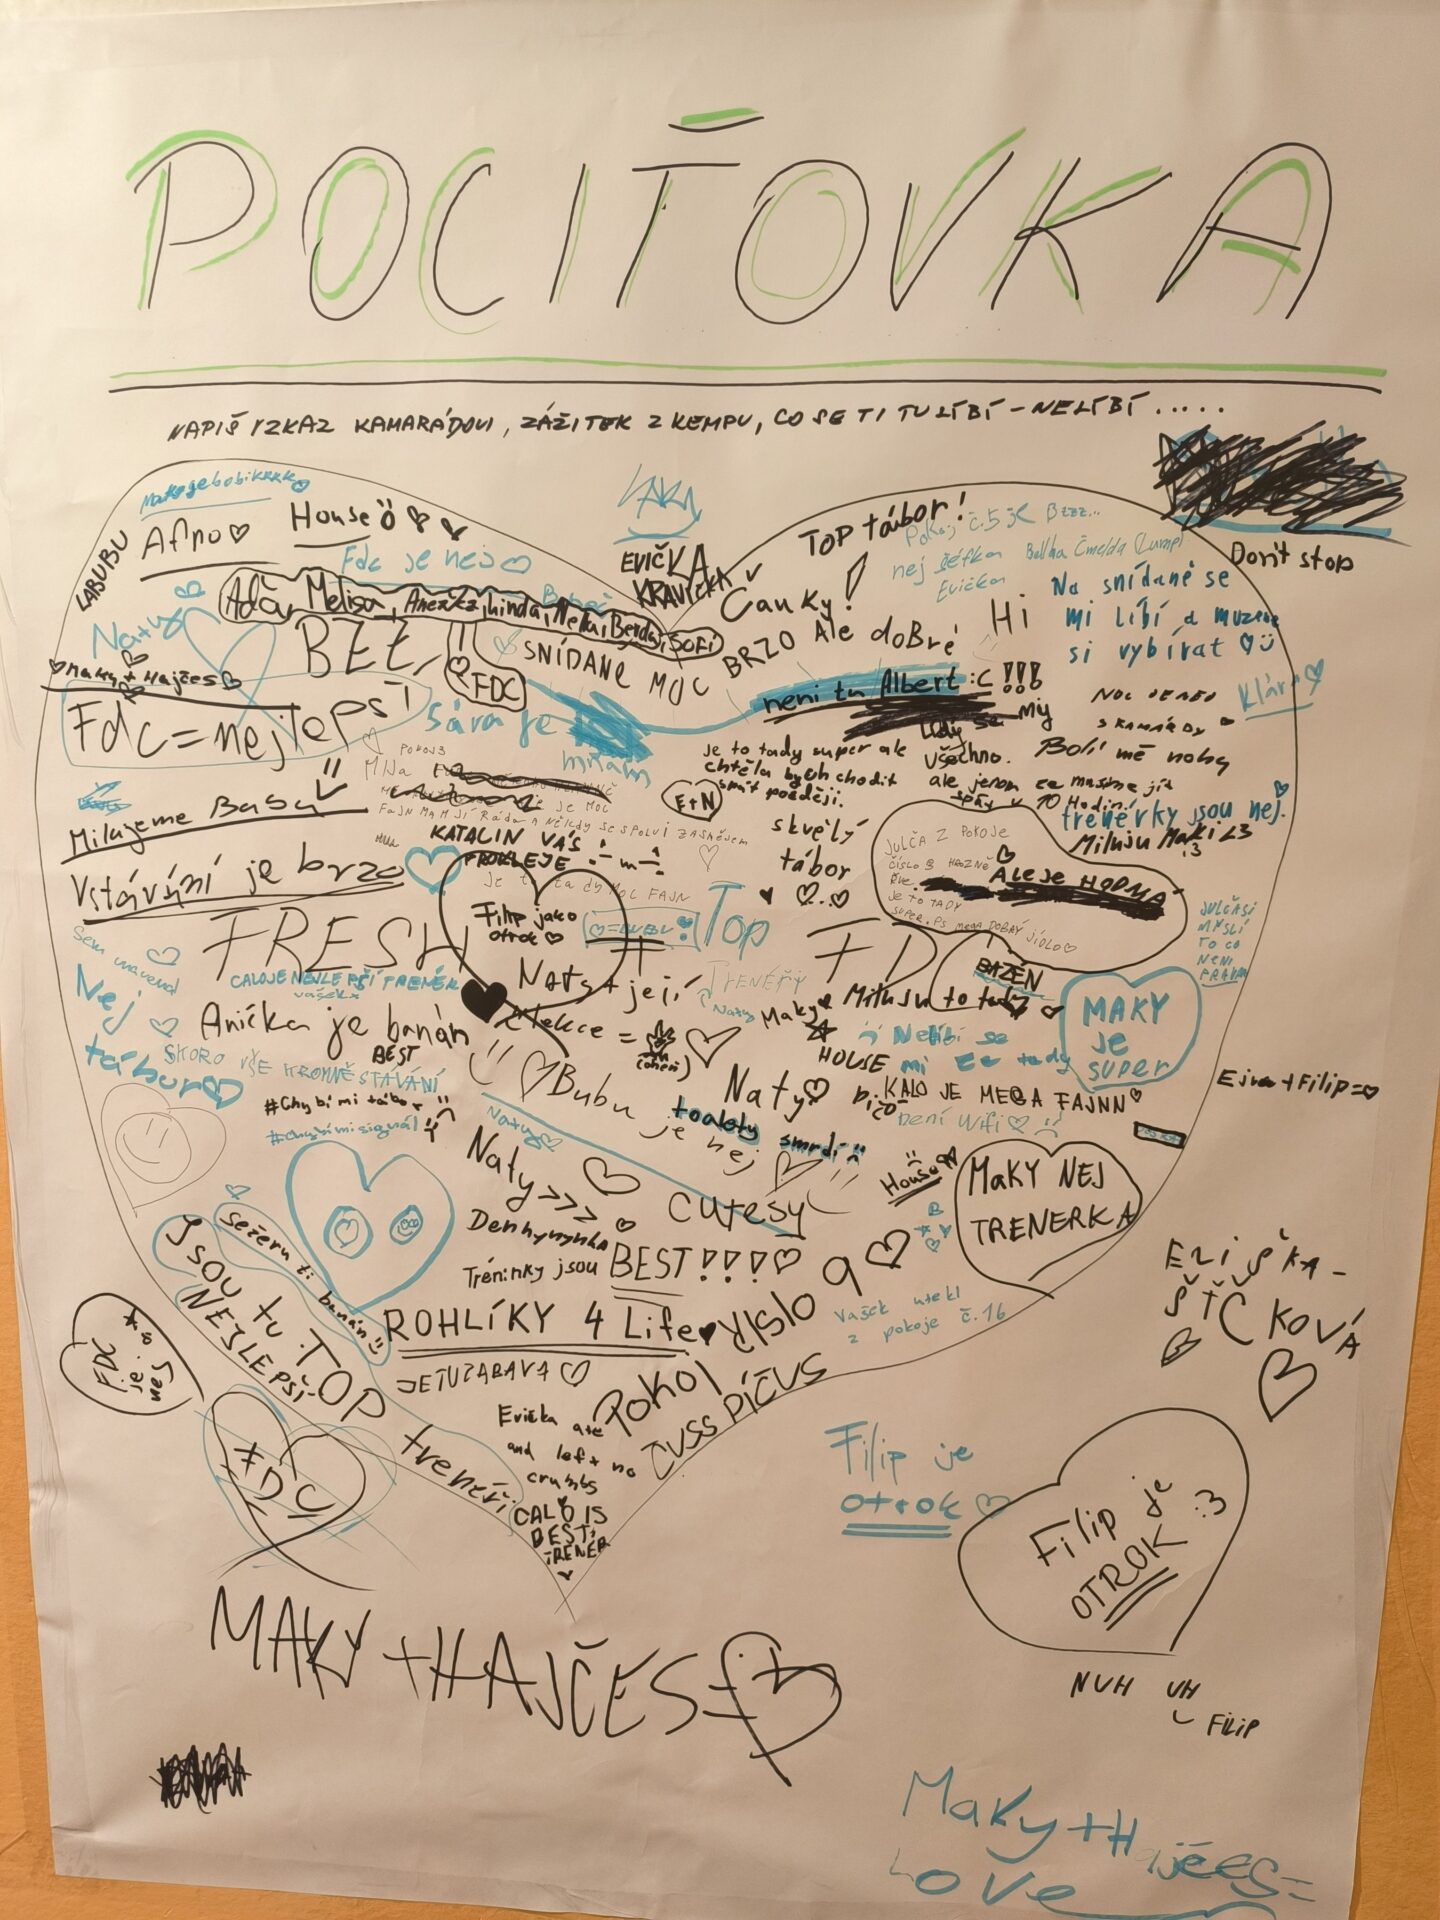 POCIŤOVKA
NAPIŠ VZKAZ KAMARÁDOVI, ZÁŽITEK Z KEMPU, CO SE TI TU LÍBÍ - NELÍBÍ.....
LABUBU
Afno
House
Fdc je nej
EVIČKA
KRAVIČKA
TOP tábor!
Pokoj č.5 je Bzzz...
nej šéfka
Evička
Dont stop
Na snídaně se
mi líbí a muzeme
si vybírat
Hi
Čauky!
Áďa, Melisa, Anežka, Linda, Nella, Berda, SOFI
Naty
BEE
SNÍDANE MOC BRZO Ale doBRé
FDC
neni tu Albert :C !!!
Maky + Hajčes
Fdc = nejlepší
Sára je
mňam
NOC
S KAMARÁDY
Klára
Lidy se
všechno.
ale jenom
my
Bolí mě nohy
ze musíme jít
spát v 10 Hodin.
Je to tady super ale
chtěla bych chodit
spát později.
POKOJ 3
E+N
Milujeme Babu
trenérky jsou nej.
Miluju Maki <3
:3
skvělý
tábor
KATALIN VÁS
PROKLEJE
JULČA Z POKOJE
ČÍSLO
ALE JE HODNÁ
JE TO TADY
SUPER. PS MEGA DOBRÝ JÍDLO
Vstávání je brzo
je to tady MOC FAJN
Filip jako
otrok
Top
FRESH
FD
JULČA SI
MYSLÍ
TO CO
NENÍ
PRAVDA
Sem unavená
CALOJE NEJLEPŠÍ TRENÉR
vašek
BAZÉN
Nej
tábor
Naty + její
elekce =
TRENÉŘI
Naty
Maky
Miluju to tady
MAKY
je
super
Anička je banán
BEST
HOUSE
Nelíbí se
mi že tady
není Wifi
SKORO VŠE KROMNĚ STÁVÁNÍ
#Chybi mi tábor
#chybi mi signál
Bubu je nej
Naty
KALO JE MEGA FAJNN
Ejna + Filip =
toalety smrdí
Naty
Naty >>>
House
MAKY NEJ
TRENERKA
cutesy
Denhynynka
Tréninky jsou BEST!!!!
sežeru ti banán
JSOU tu TOP
NEJLEPŠÍ
trenéři
ROHLÍKY 4 Life
POKOJ číslo 9
Vašek utekl
z pokoje č.16
ELIŠKA -
ŠŤČKOVÁ
FDC
je
nej
JE TU ZÁBAVA
ČUSS PÍČUS
Evička ate
and left no
crumbs
FDC
CALO IS
BEST
TRENÉR
Filip je
otrok
Filip je
OTROK :3
MAKY + HAJČES =
NUH UH
FILIP
Maky + Hajčes =
Love